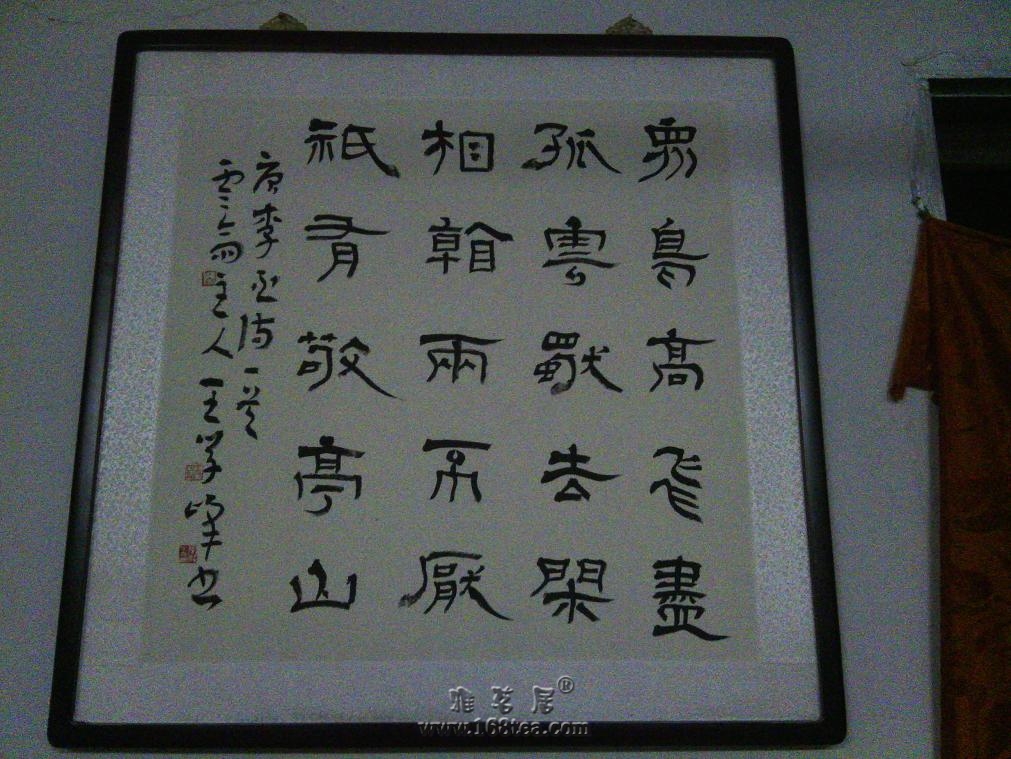 眾鳥高飛盡
孤雲獨去閑
相看兩不厭
祇有敬亭山
唐李诗一首
主人王学峰书
雅茗居®
www.168tea.com